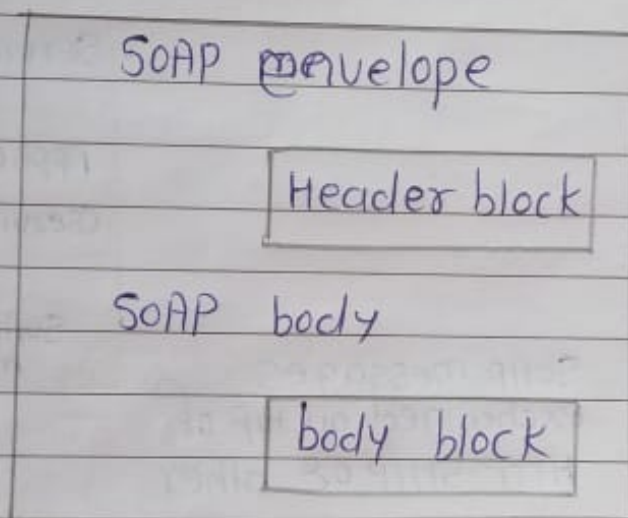 SOAP envelope
Header block
SOAP body
body block